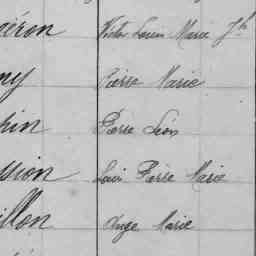 géron Victor Louis Marie Jh
ny Pierre Marie
hin Pierre Léon
ssion Louis Pierre Marie
illon Ange Marie